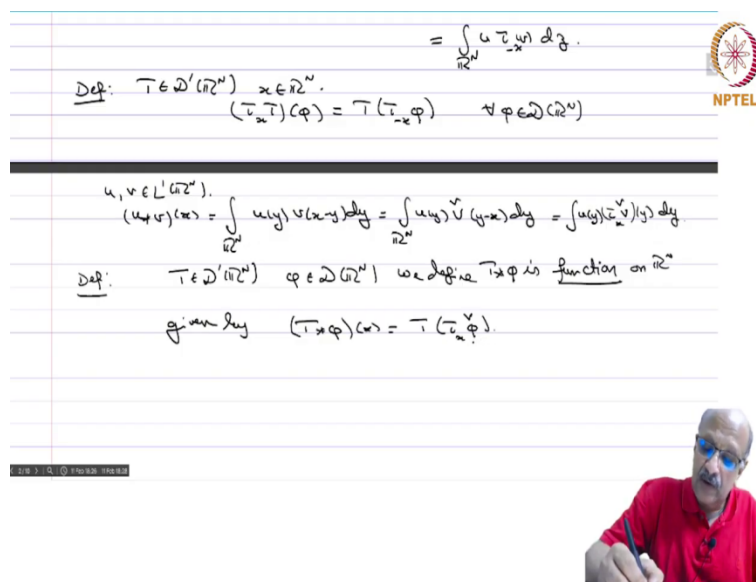 = ∫_{ℝ^N} u τ_{-x} w dz.
Def: T ∈ 𝒟'(ℝ^N) x ∈ ℝ^N.
(τ_x T)(φ) = T(τ_{-x} φ) ∀ φ ∈ 𝒟(ℝ^N)
NPTEL
u, v ∈ L¹(ℝ^N).
(u * v)(x) = ∫_{ℝ^N} u(y) v(x-y) dy = ∫_{ℝ^N} u(y) v̌(y-x) dy = ∫ u(y)(τ_x v̌)(y) dy.
Def: T ∈ 𝒟'(ℝ^N) φ ∈ 𝒟(ℝ^N) we define T*φ is function on ℝ^N
given by (T*φ)(x) = T(τ_x φ̌).
2/10